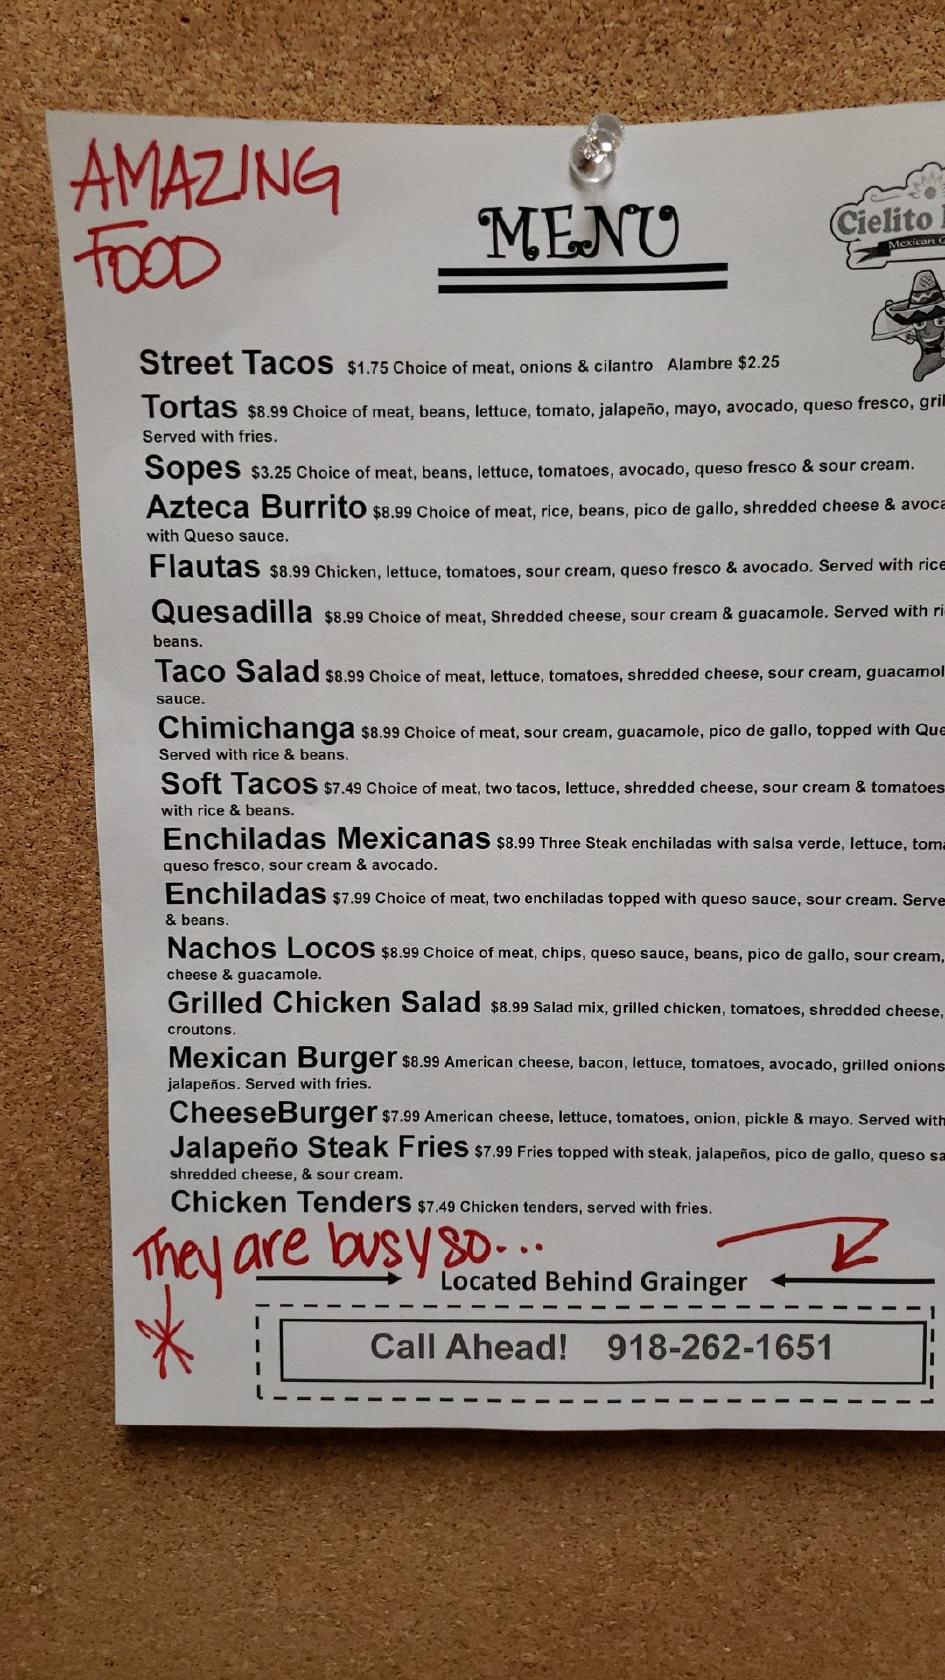 AMAZING
FOOD
MENU
Cielito
Mexican
Street Tacos $1.75 Choice of meat, onions & cilantro Alambre $2.25
Tortas $8.99 Choice of meat, beans, lettuce, tomato, jalapeño, mayo, avocado, queso fresco,
Served with fries.
Sopes $3.25 Choice of meat, beans, lettuce, tomatoes, avocado, queso fresco & sour cream.
Azteca Burrito $8.99 Choice of meat, rice, beans, pico de gallo, shredded cheese &
with Queso sauce.
Flautas $8.99 Chicken, lettuce, tomatoes, sour cream, queso fresco & avocado. Served with rice
Quesadilla $8.99 Choice of meat, Shredded cheese, sour cream & guacamole. Served with
beans.
Taco Salad $8.99 Choice of meat, lettuce, tomatoes, shredded cheese, sour cream,
sauce.
Chimichanga $8.99 Choice of meat, sour cream, guacamole, pico de gallo, topped with
Served with rice & beans.
Soft Tacos $7.49 Choice of meat, two tacos, lettuce, shredded cheese, sour cream & tomatoes
with rice & beans.
Enchiladas Mexicanas $8.99 Three Steak enchiladas with salsa verde, lettuce,
queso fresco, sour cream & avocado.
Enchiladas $7.99 Choice of meat, two enchiladas topped with queso sauce, sour cream.
& beans.
Nachos Locos $8.99 Choice of meat, chips, queso sauce, beans, pico de gallo, sour cream,
cheese & guacamole.
Grilled Chicken Salad $8.99 Salad mix, grilled chicken, tomatoes, shredded cheese,
croutons.
Mexican Burger $8.99 American cheese, bacon, lettuce, tomatoes, avocado, grilled onions
jalapeños. Served with fries.
CheeseBurger $7.99 American cheese, lettuce, tomatoes, onion, pickle & mayo. Served with
Jalapeño Steak Fries $7.99 Fries topped with steak, jalapeños, pico de gallo, queso
shredded cheese, & sour cream.
Chicken Tenders $7.49 Chicken tenders, served with fries.
They are busy so...
Located Behind Grainger
Call Ahead! 918-262-1651